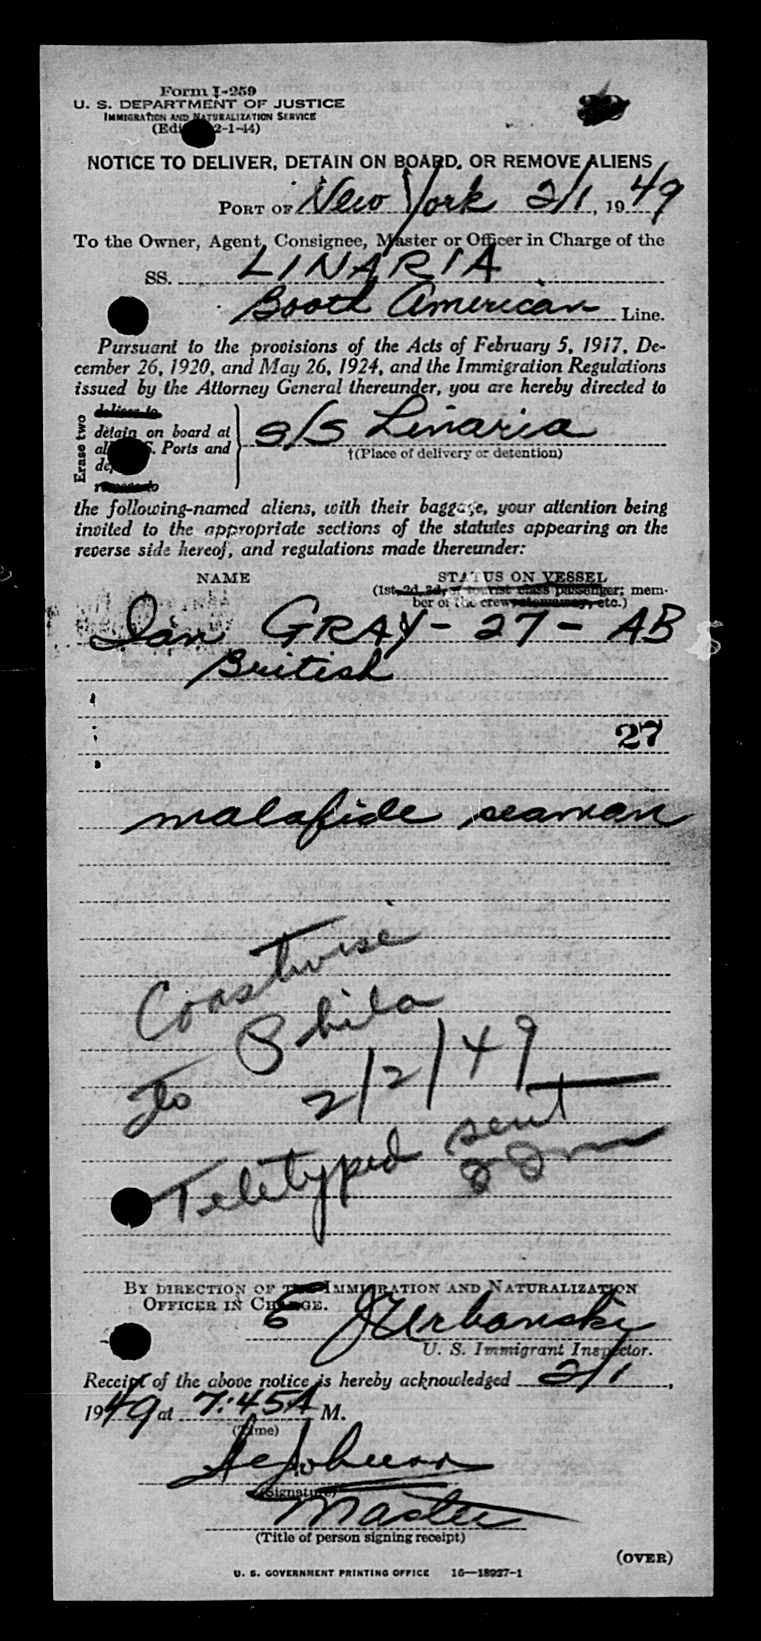 Form I-259
U. S. DEPARTMENT OF JUSTICE
IMMIGRATION AND NATURALIZATION SERVICE
(Edi 2-1-44)
NOTICE TO DELIVER, DETAIN ON BOARD, OR REMOVE ALIENS
PORT OF New York 2/1, 1949
To the Owner, Agent, Consignee, Master or Officer in Charge of the
SS. LINARIA
Booth American Line.
Pursuant to the provisions of the Acts of February 5, 1917, De-
cember 26, 1920, and May 26, 1924, and the Immigration Regulations
issued by the Attorney General thereunder, you are hereby directed to
Erase two
deliver to
detain on board at
al S. Ports and
de
remove to
S/S Linaria
†(Place of delivery or detention)
the following-named aliens, with their baggage, your attention being
invited to the appropriate sections of the statutes appearing on the
reverse side hereof, and regulations made thereunder:
NAME STATUS ON VESSEL
(1st, 2d, 3d, or tourist class passenger; mem-
ber of the crew, stowaway, etc.)
Ian GRAY - 27 - AB
British
27
malafide seaman
Coastwise
to Phila
2/2/49
Teletyped sent
BY DIRECTION OF THE IMMIGRATION AND NATURALIZATION
OFFICER IN CHARGE.
E J Urbanski
U. S. Immigrant Inspector.
Receipt of the above notice is hereby acknowledged 2/1,
1949 at 7:45 A M.
(Time)
(Signature)
Master
(Title of person signing receipt)
(OVER)
U. S. GOVERNMENT PRINTING OFFICE 16—18927-1